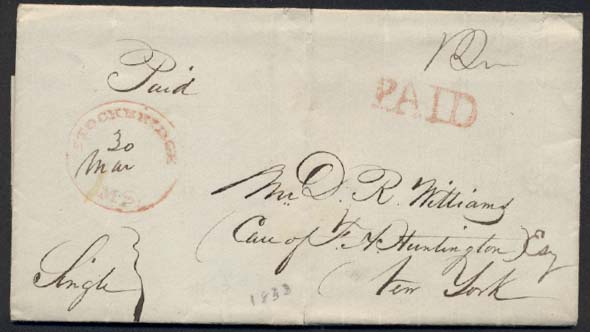 Paid
PAID
STOCKBRIDGE
30
Mar
MS
Mr. D. R. Williams
(Care of F. A. Huntington) Esq
New York
Single
1833